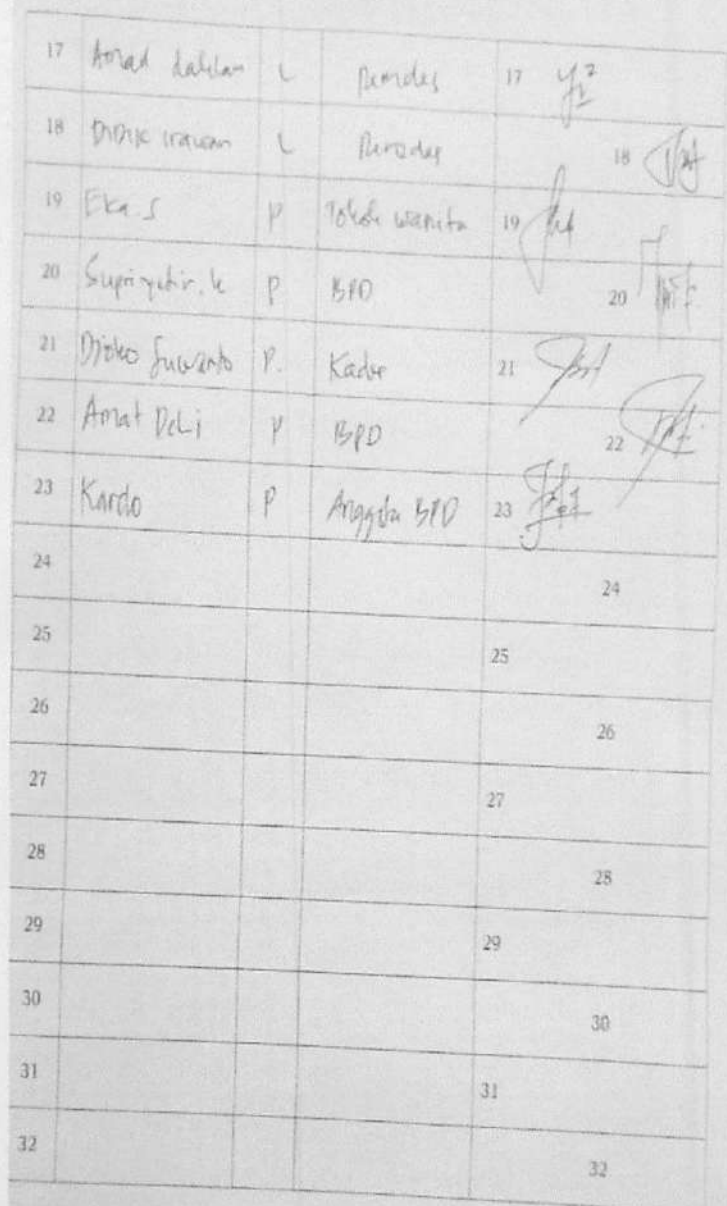 17 Amad dahlan L Pemdes 17
18 Didik irawan L Pemdes 18
19 Eka.S P Tokoh wanita 19
20 Supriyatin.k P BPD 20
21 Djoko Suwanto P. Kader 21
22 Amat Deli P BPD 22
23 Kardo P Anggota BPD 23
24 24
25 25
26 26
27 27
28 28
29 29
30 30
31 31
32 32